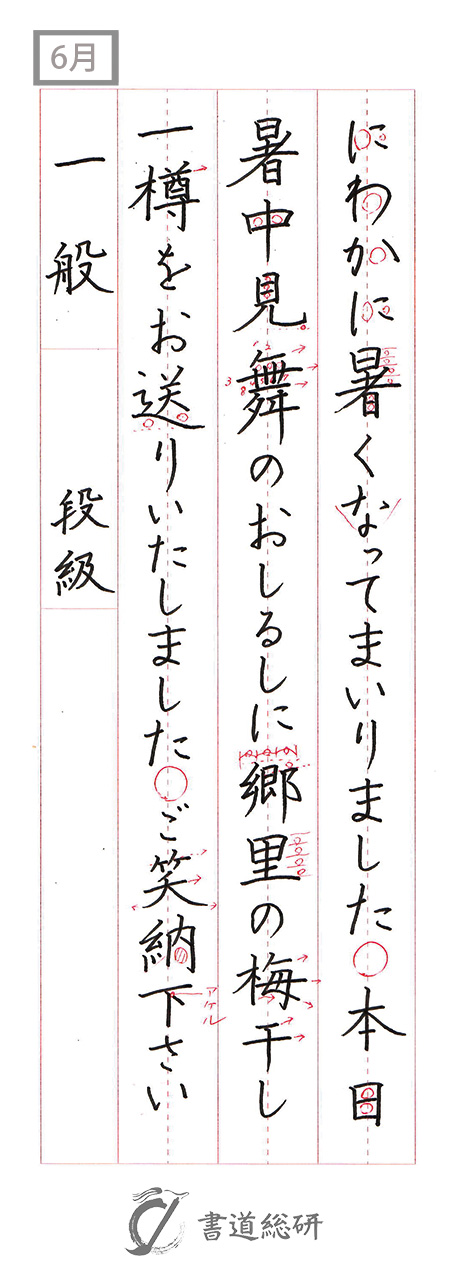 6月
にわかに暑くなってまいりました 本日
暑中見舞のおしるしに郷里の梅干し
一樽をお送りいたしました ご笑納下さい
アケル
一般
段級
書道総研